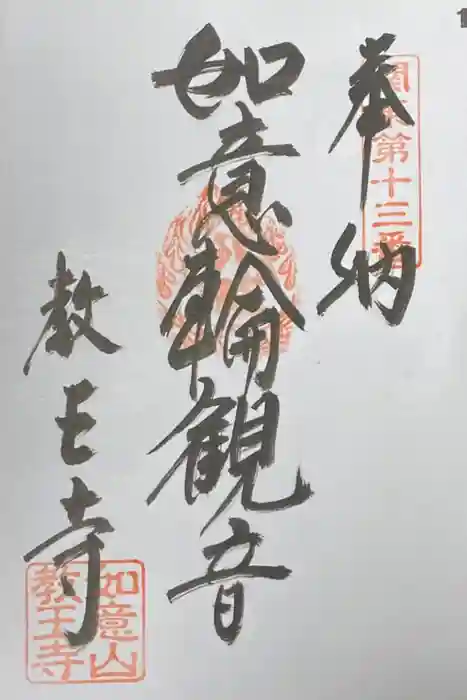 奉納
関東第十三番
如意輪観音
教王寺
如意山
教王寺
1